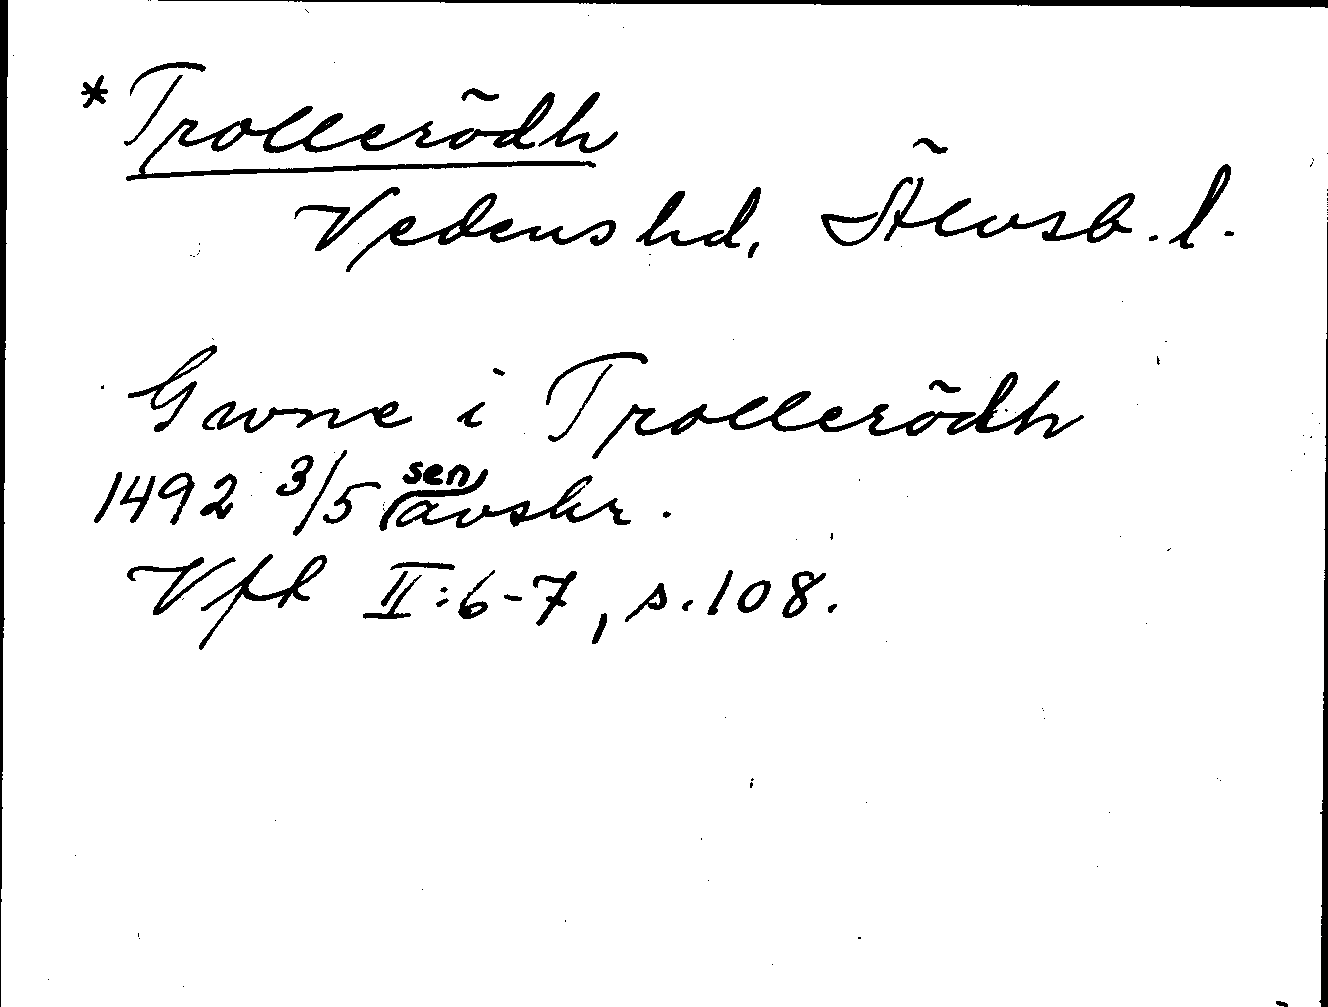 *Trollerödh
Vedens hd, Älvsb. l.
Gwne i Trollerödh
1492 3/5 (sen avskr.
Vfk II:6-7, s. 108.